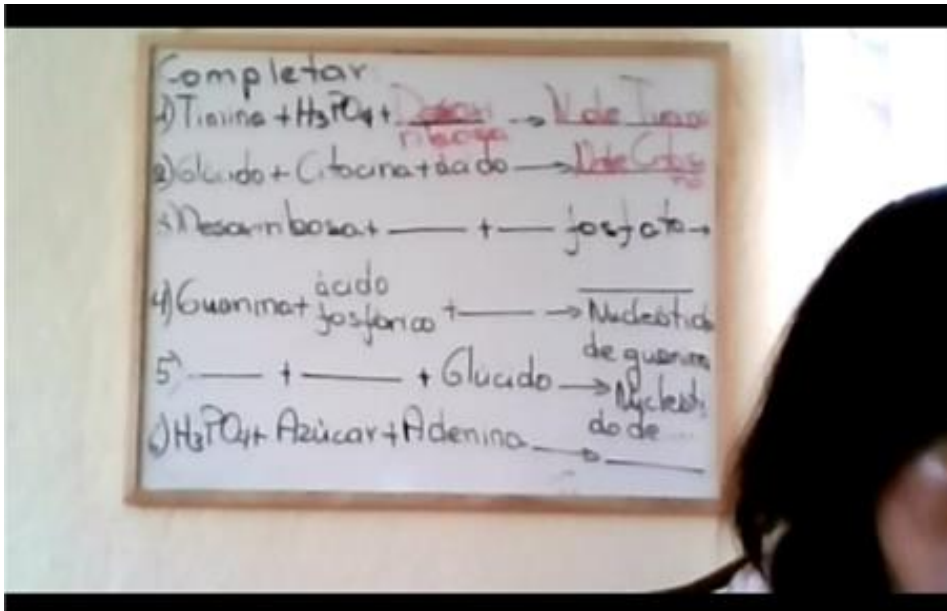 Completar
1) Timina + H3PO4 + Desoxi ribosa → N de Timina
2) Glúcido + Citocina + ácido → N de Citosi na
3) Desoxirribosa + ___ + ___ fosfato →
___
4) Guanina + ácido fosfórico + ___ → Nucleótido de guanina
5) ___ + ___ + Glúcido → Nucleóti do de ...
6) H3PO4 + Azúcar + Adenina → ___